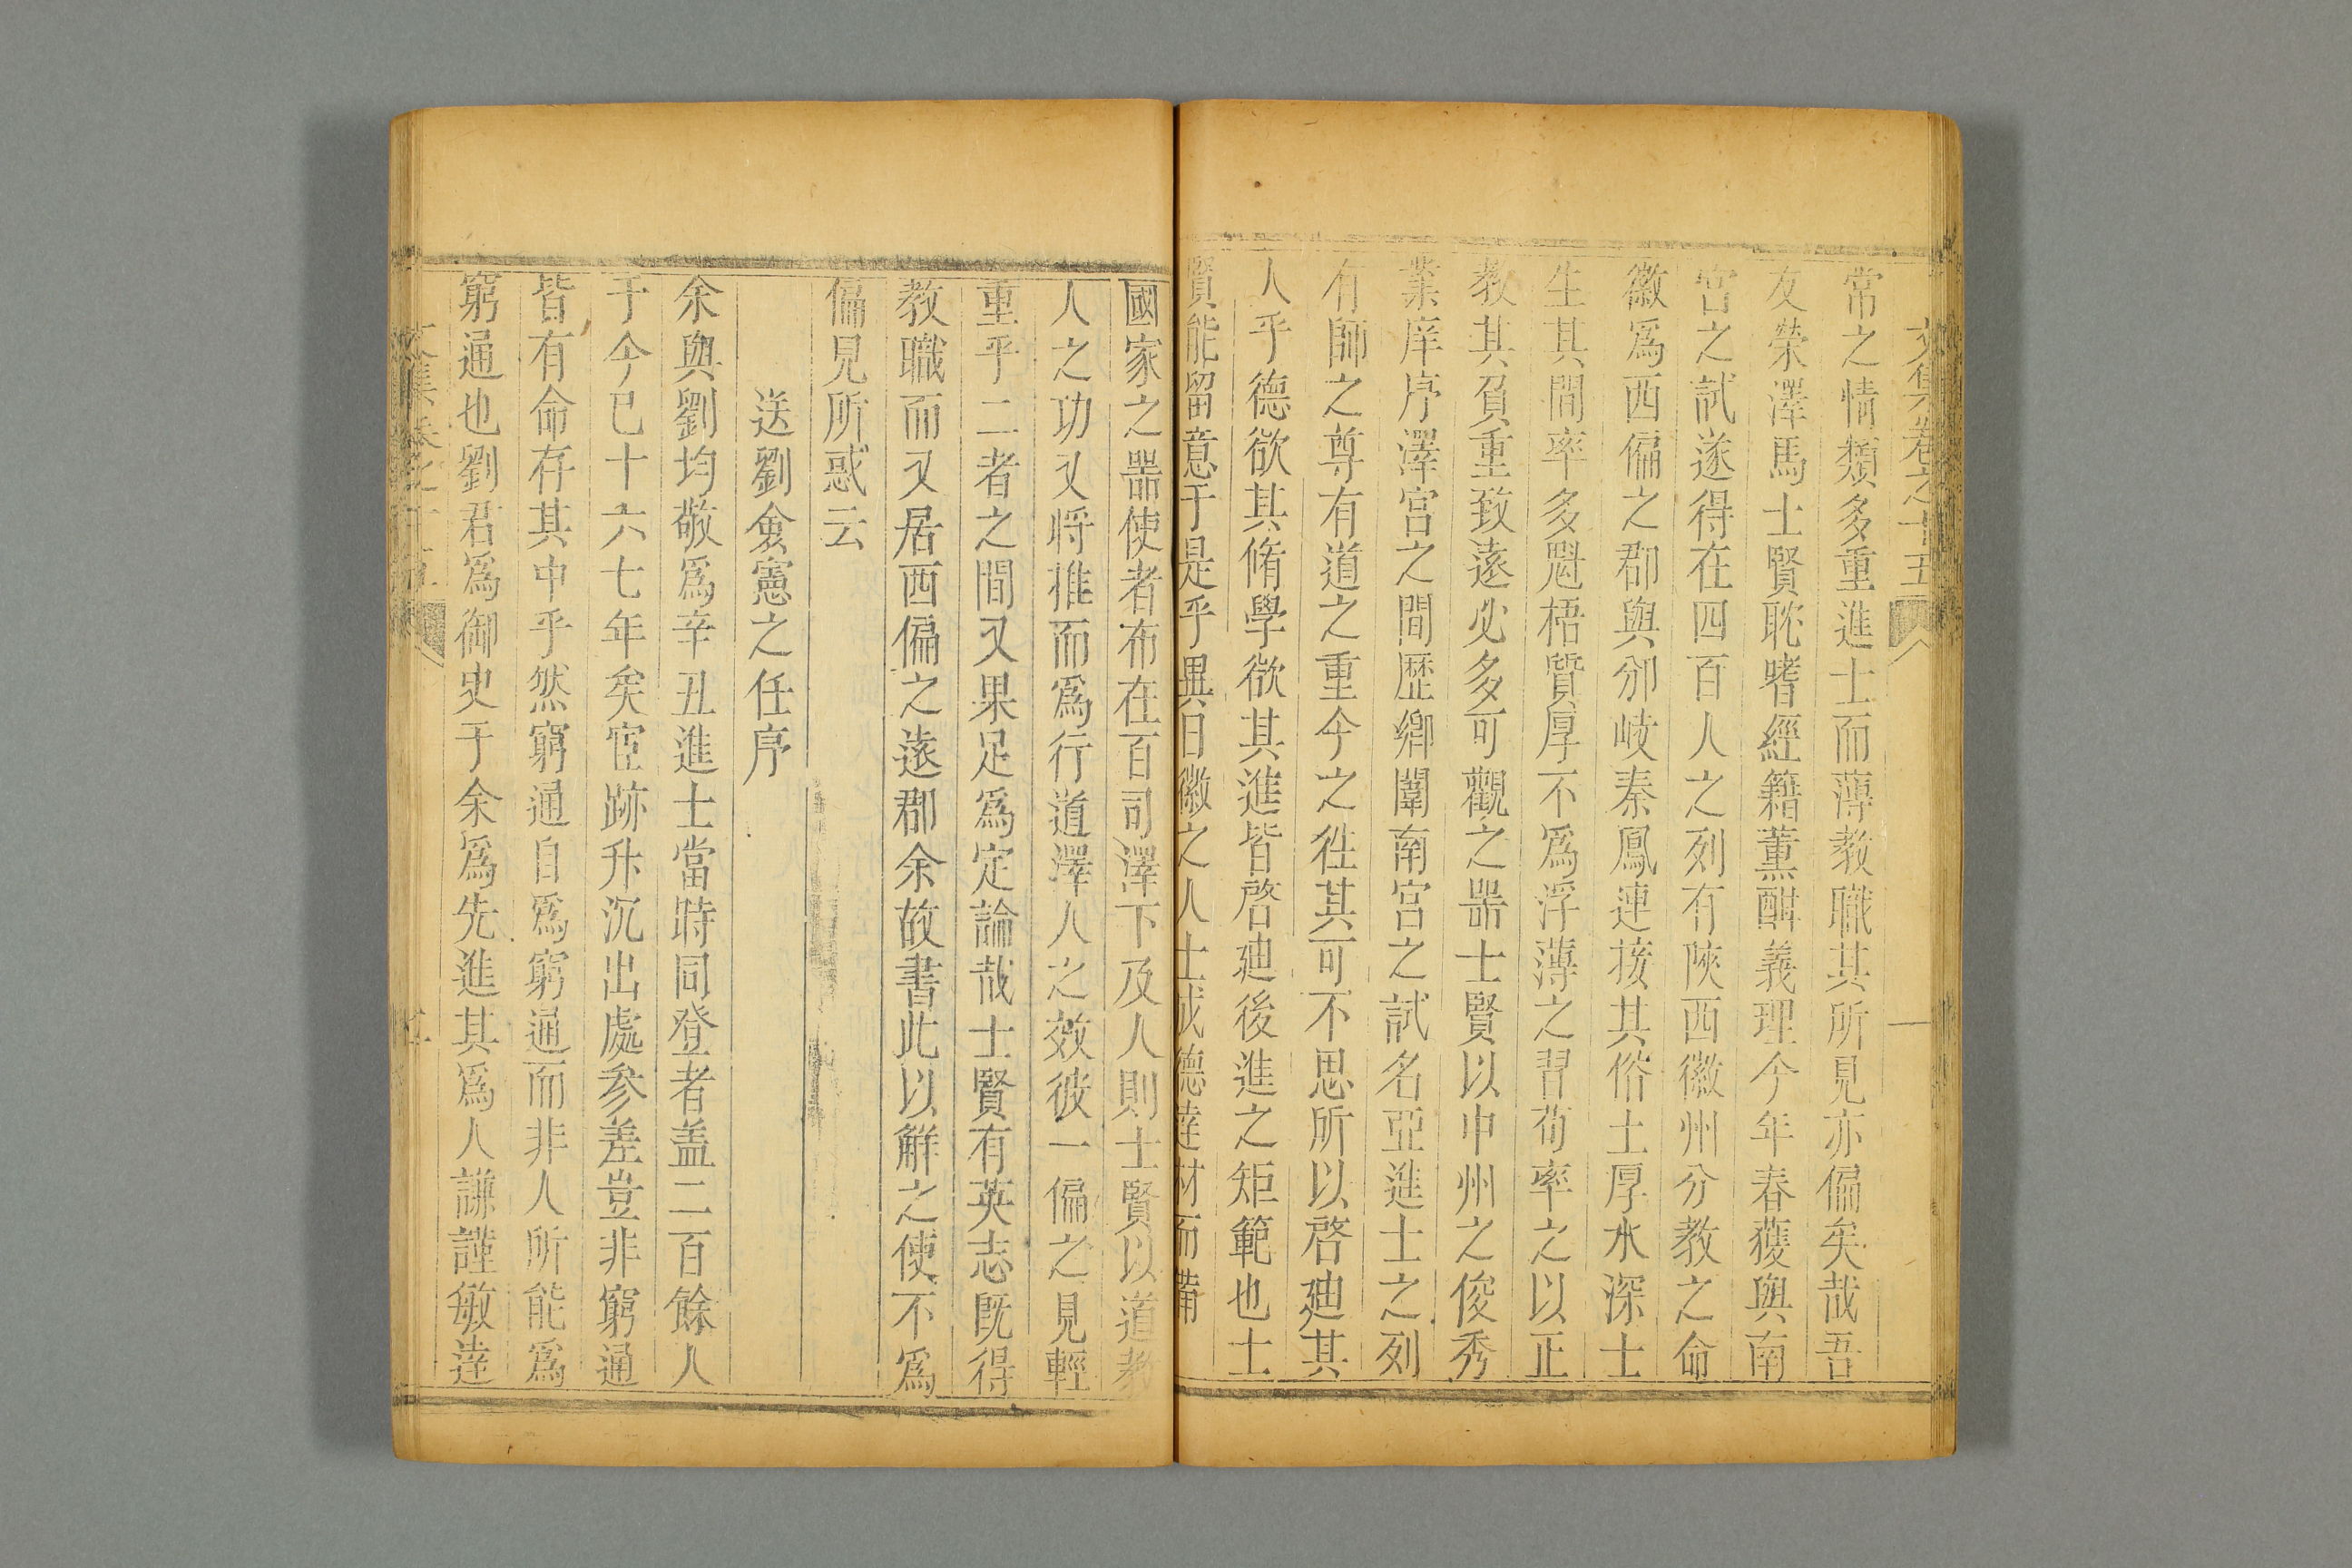 文集卷之十五
常之情類多重進士而薄教職其所見亦偏矣哉吾
友榮澤馬士賢耽嗜經籍薰酣義理今年春蒦與南
宮之試遂得在四百人之列有陜西徽州分教之命
徽爲西偏之郡與邠岐秦鳳連接其俗土厚水深士
生其間率多魁梧質厚不爲浮薄之習苟率之以正
教其負重致遠必多可觀之噐士賢以中州之俊秀
業庠序澤宮之間歷鄉闈南宮之試名亞進士之列
有師之尊有道之重今之徃其可不思所以啓廸其
人乎德欲其脩學欲其進皆啓廸後進之矩範也士
賢能留意于是乎異日徽之人士成德達材而備
國家之噐使者布在百司澤下及人則士賢以道教
人之功又将推而爲行道澤人之效彼一偏之見輕
重乎二者之間又果足爲定論哉士賢有英志既得
教職而又居西偏之遠郡余故書此以觧之使不爲
偏見所惑云
送劉僉憲之任序
余與劉均敬爲辛丑進士當時同登者盖二百餘人
于今已十六七年矣宦跡升沉出處參差豈非窮通
皆有命存其中乎然窮通自爲窮通而非人所能爲
窮通也劉君爲御史于余爲先進其爲人謙謹敏達
文集卷之十五